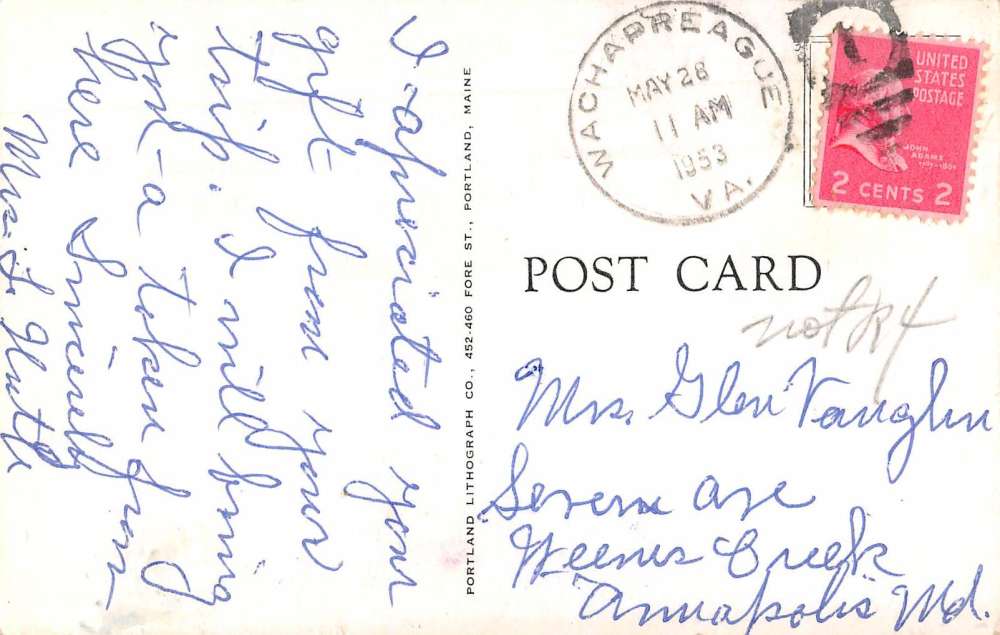 I apreciated your
gift from your
trip. I will bring
you - a token from
here Sincerely
Mrs.
PORTLAND LITHOGRAPH CO., 452-460 FORE ST., PORTLAND, MAINE
WACHAPREAGUE
MAY 28
11 AM
1953
VA.
UNITED
STATES
POSTAGE
JOHN
ADAMS
2 CENTS 2
POST CARD
not R4
Mrs. Glen Vaughn
Severn Ave
Weems Creek
Annapolis Md.